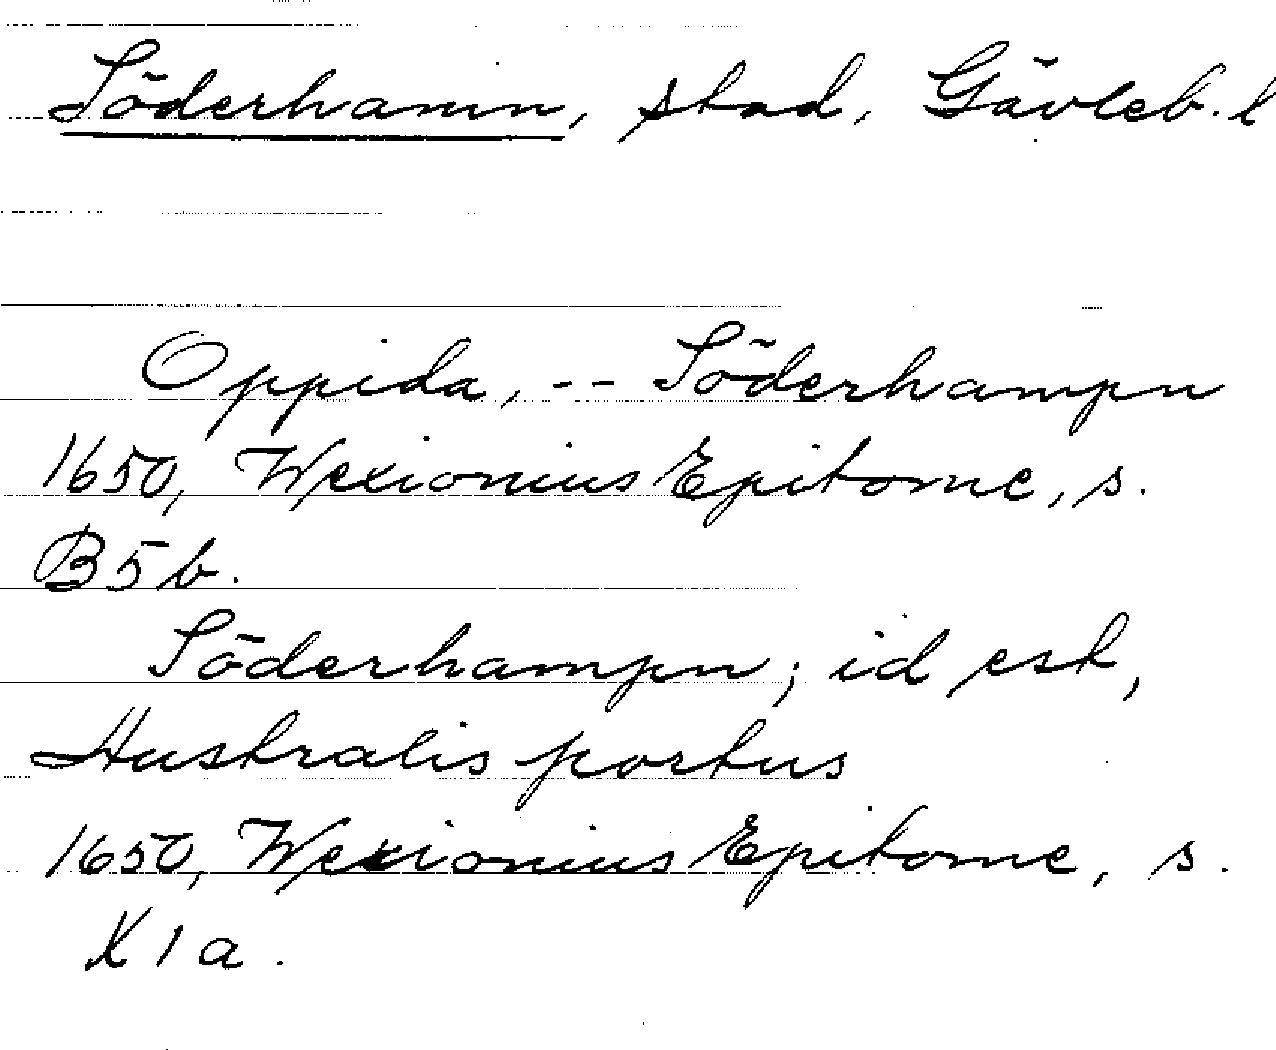 Söderhamn, stad, Gävleb. l
Oppida, -- Söderhampn
1650, Wexionius Epitome, s.
B5b.
Söderhampn; id est,
Australis portus
1650, Wexionius Epitome, s.
X1a.